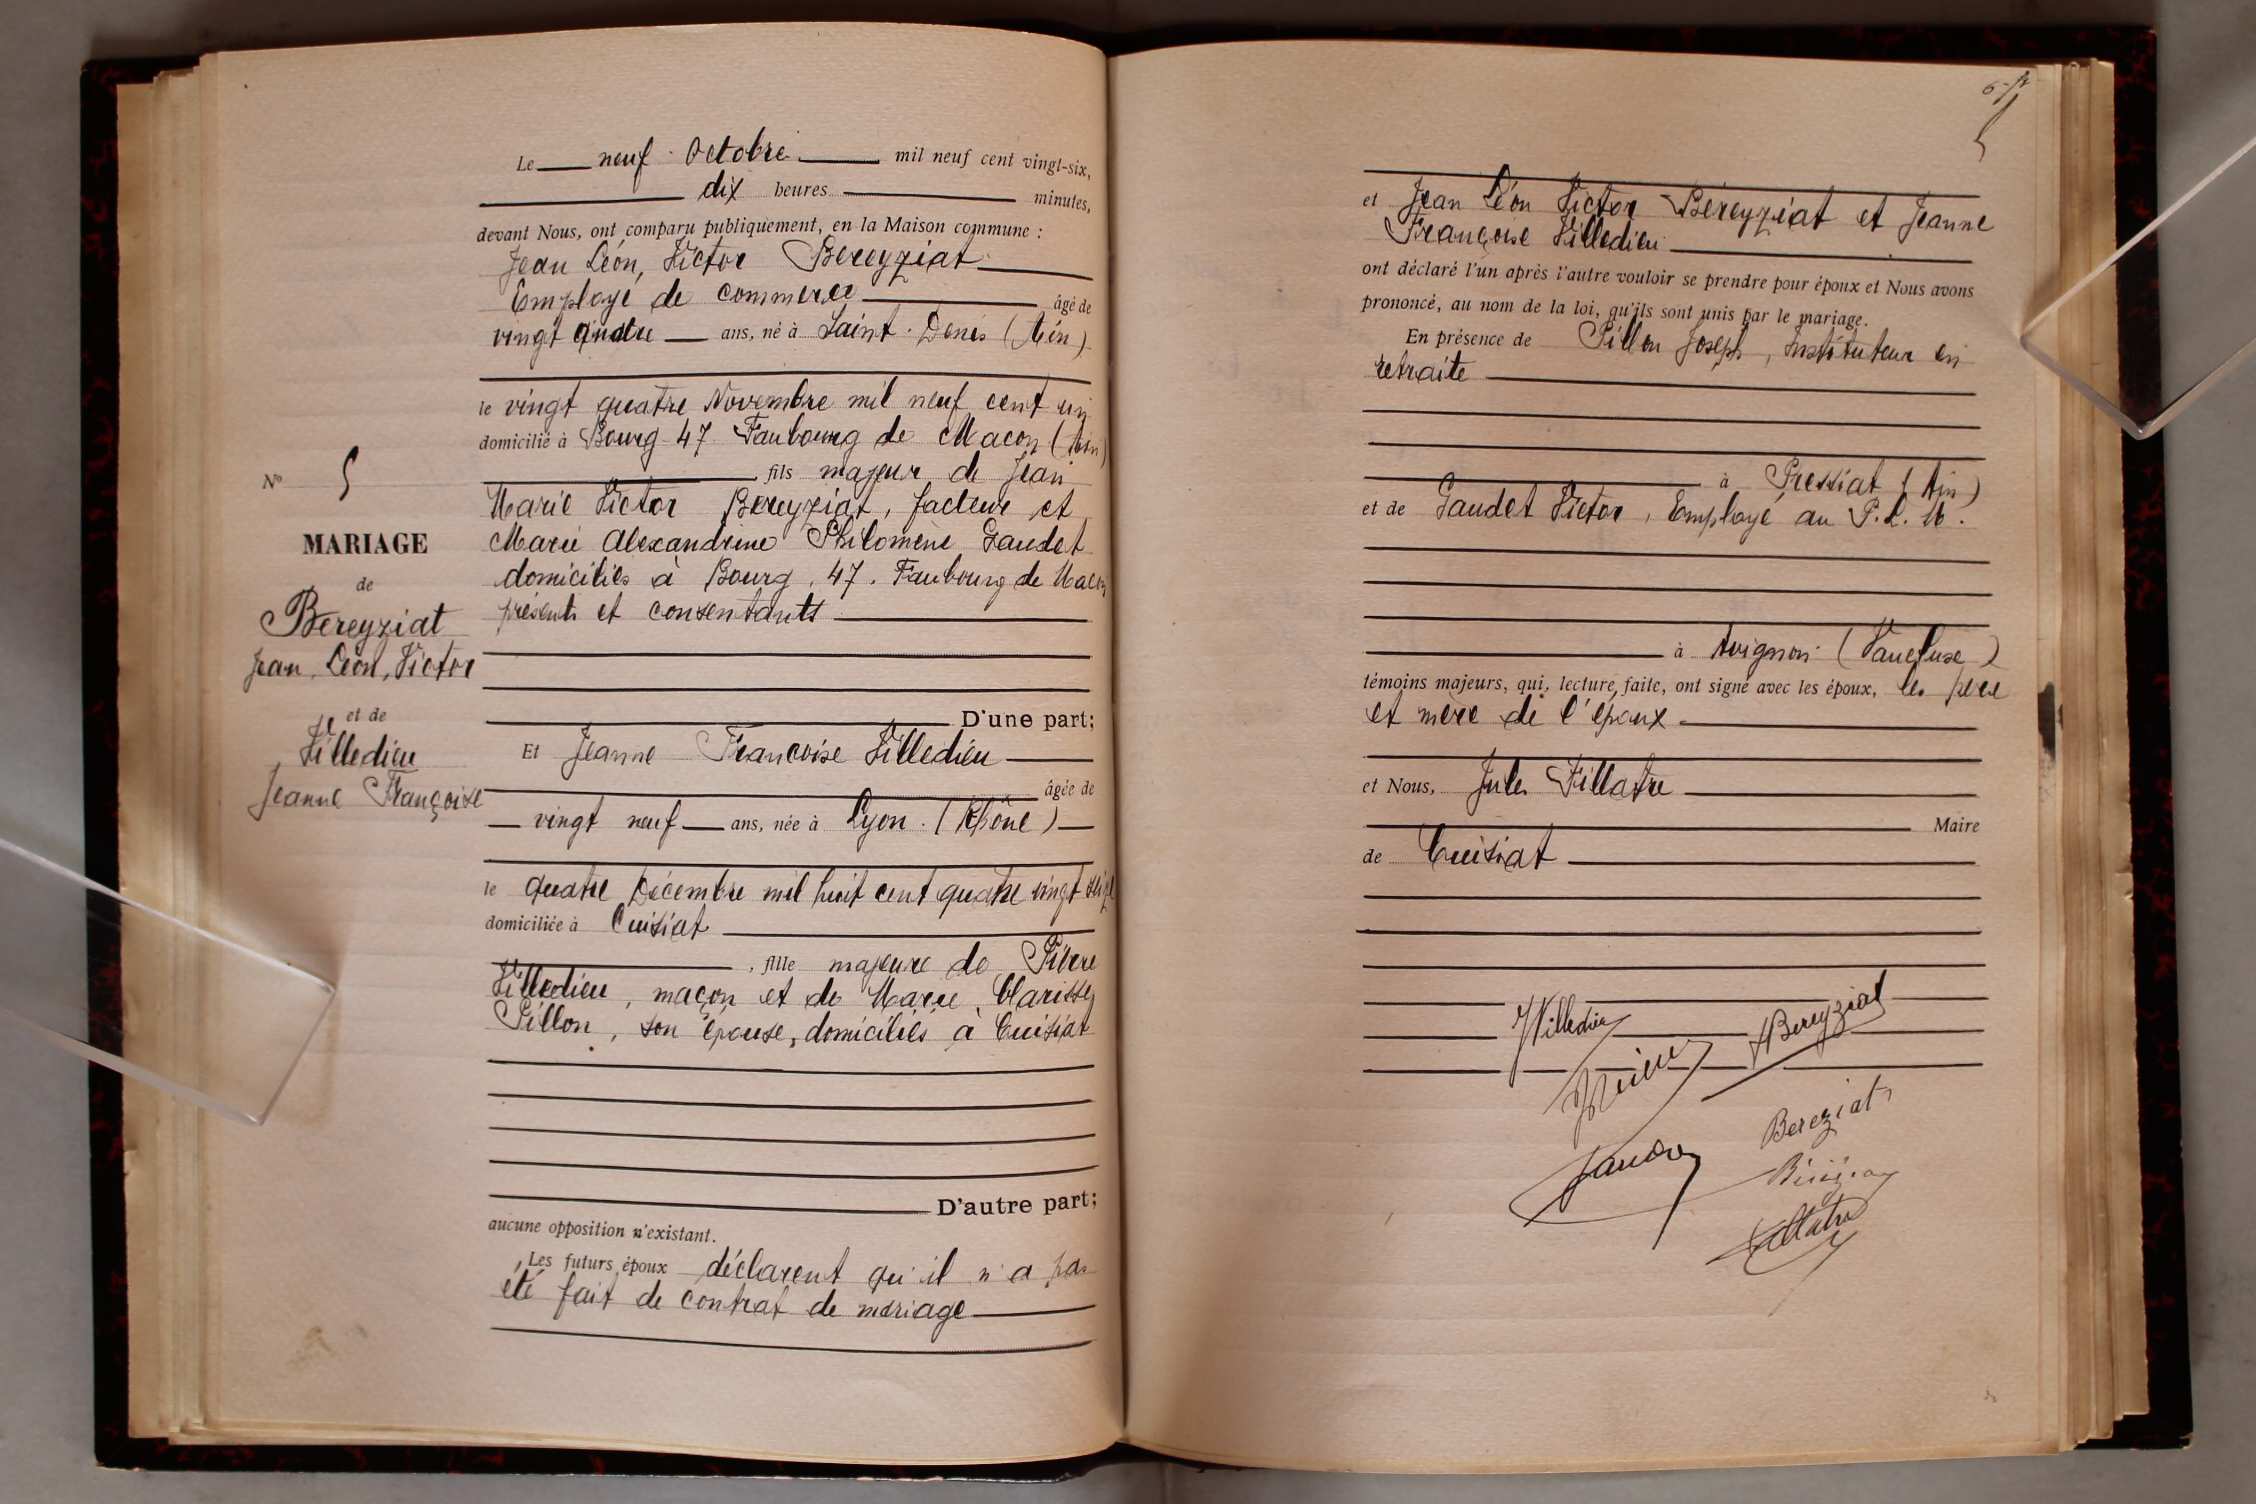 Le neuf Octobre mil neuf cent vingt-six,
dix heures minutes,
devant Nous, ont comparu publiquement, en la Maison commune :
Jean Léon, Victor Bereyziat
Employé de commerce âgé de
vingt quatre ans, né à Saint-Denis (Ain)
le vingt quatre Novembre mil neuf cent un
domicilié à Bourg 47 Faubourg de Macon (Ain)
fils majeur de Jean
Marie Victor Bereyziat, facteur et
Marie Alexandrine Philomène Gaudet
domiciliés à Bourg, 47, Faubourg de Macon
présents et consentants
D'une part;
Et Jeanne Francoise Villedieu
âgée de
vingt neuf ans, née à Lyon (Rhône)
le quatre Décembre mil huit cent quatre vingt seize
domiciliée à Cuisiat
, fille majeure de Pierre
Villedieu, maçon et de Marie Clarisse
Pillon, son épouse, domiciliés à Cuisiat
D'autre part;
aucune opposition n'existant.
Les futurs époux déclarent qu'il n'a pas
été fait de contrat de mariage
N° 5
MARIAGE
de
Béreyziat
Jean, Léon, Victor
et de
Villedieu
Jeanne Françoise
5
et Jean Léon Victor Béreyziat et Jeanne
Françoise Villedieu
ont déclaré l'un après l'autre vouloir se prendre pour époux et Nous avons
prononcé, au nom de la loi, qu'ils sont unis par le mariage.
En présence de Pillon Joseph, Instituteur en
retraite
à Pressiat (Ain)
et de Gaudet Victor, Employé au P.L.M.
à Avignon (Vaucluse)
témoins majeurs, qui, lecture faite, ont signé avec les époux, les père
et mère de l'époux
et Nous, Jules Fillatre
Maire
de Cuisiat
Villedieu
Bereyziat
Bereziat